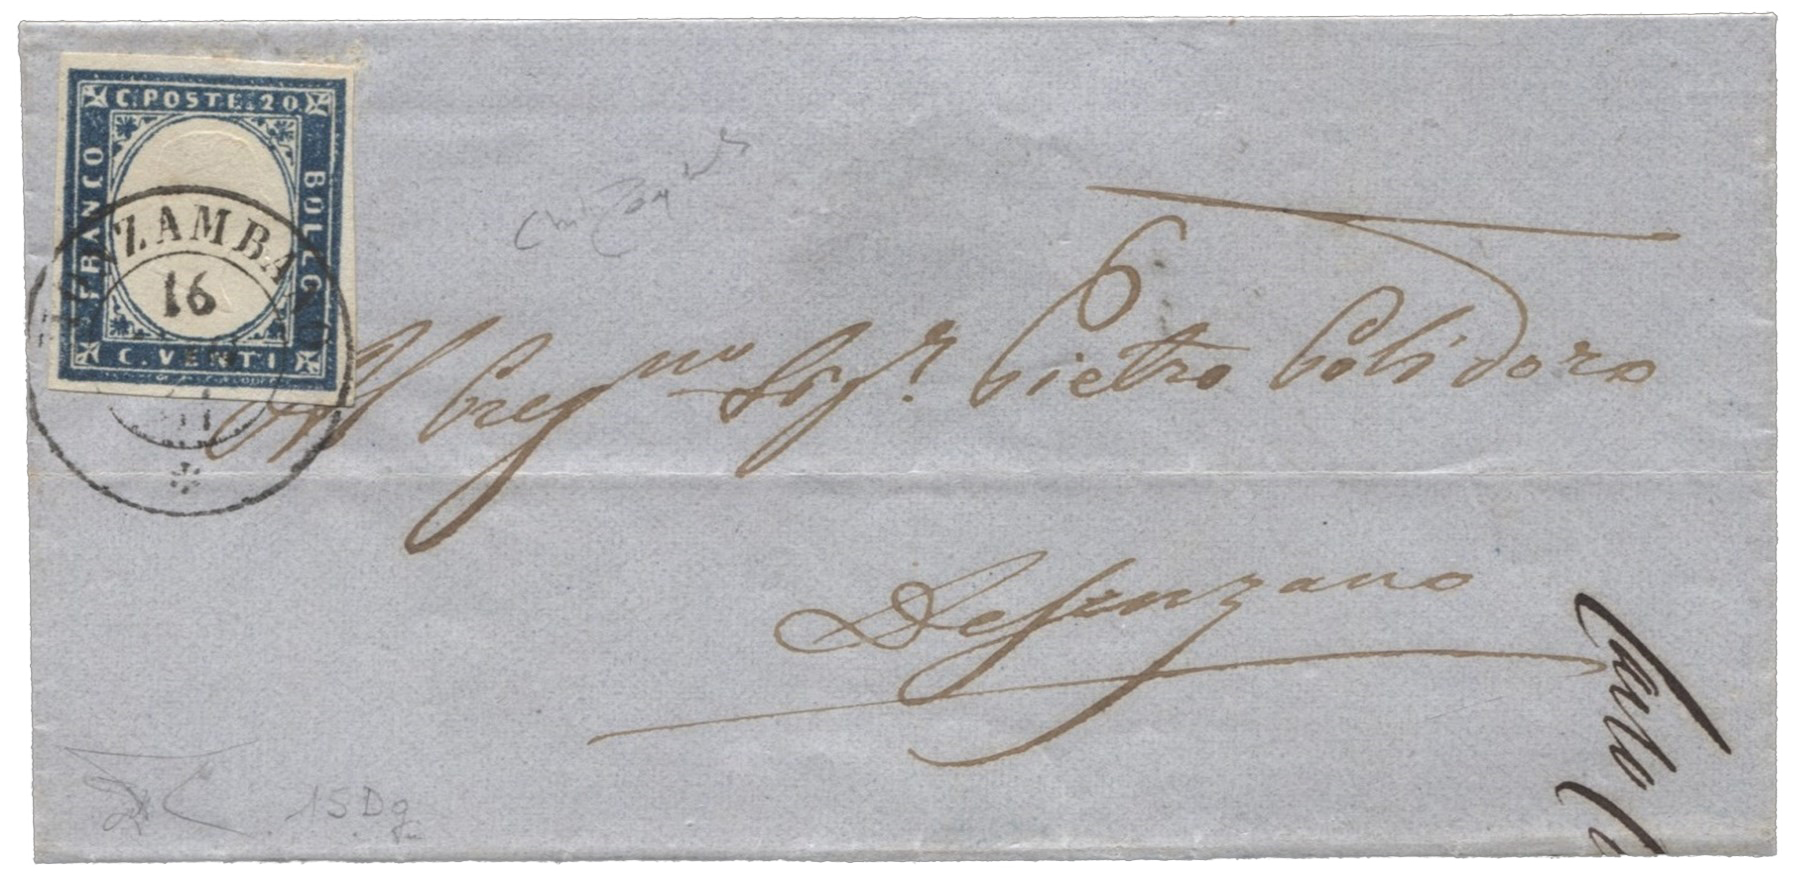 C. POSTE. 20
FRANCO
BOLLO
C. VENTI
ZAMBA
16
Al Pregmo Sigr. Pietro Polidoro
Desenzano
Carlo
15Dg